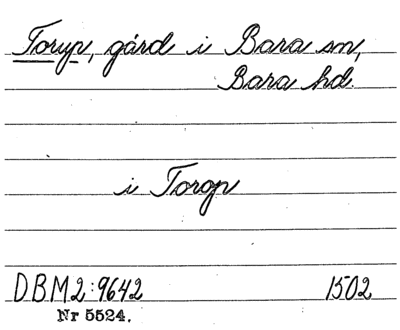 Torup, gård i Bara sn,
Bara hd.
i Torop
DBM2:9642 1502
Nr 5524.